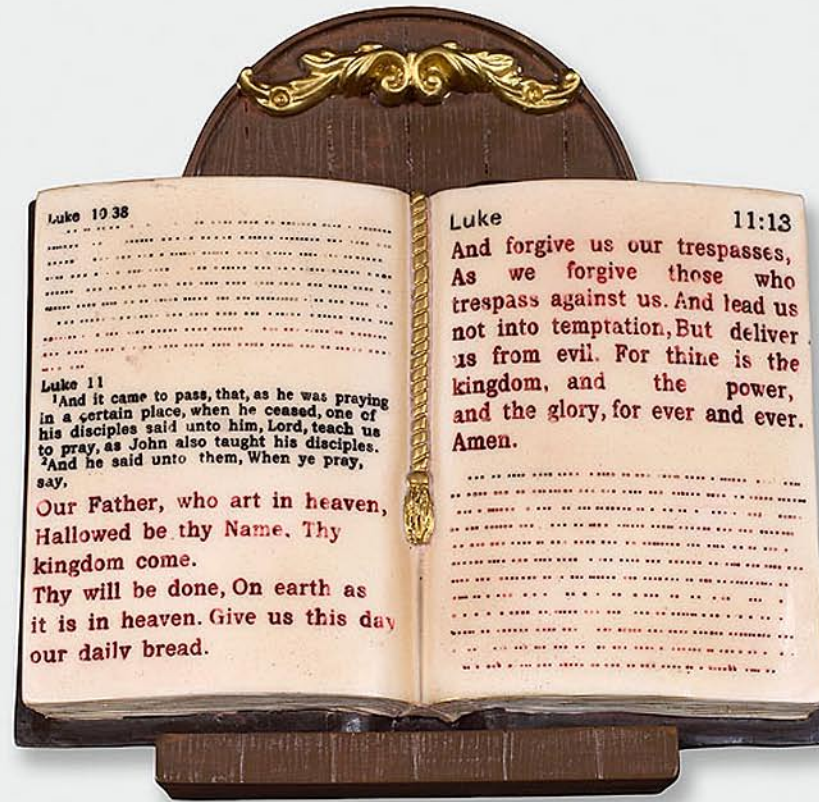 Luke 10 38
Luke 11
¹And it came to pass, that, as he was praying
in a certain place, when he ceased, one of
his disciples said unto him, Lord, teach us
to pray, as John also taught his disciples.
²And he said unto them, When ye pray,
say,
Our Father, who art in heaven,
Hallowed be thy Name. Thy
kingdom come.
Thy will be done, On earth as
it is in heaven. Give us this day
our daily bread.
Luke 11:13
And forgive us our trespasses,
As we forgive those who
trespass against us. And lead us
not into temptation, But deliver
us from evil. For thine is the
kingdom, and the power,
and the glory, for ever and ever.
Amen.